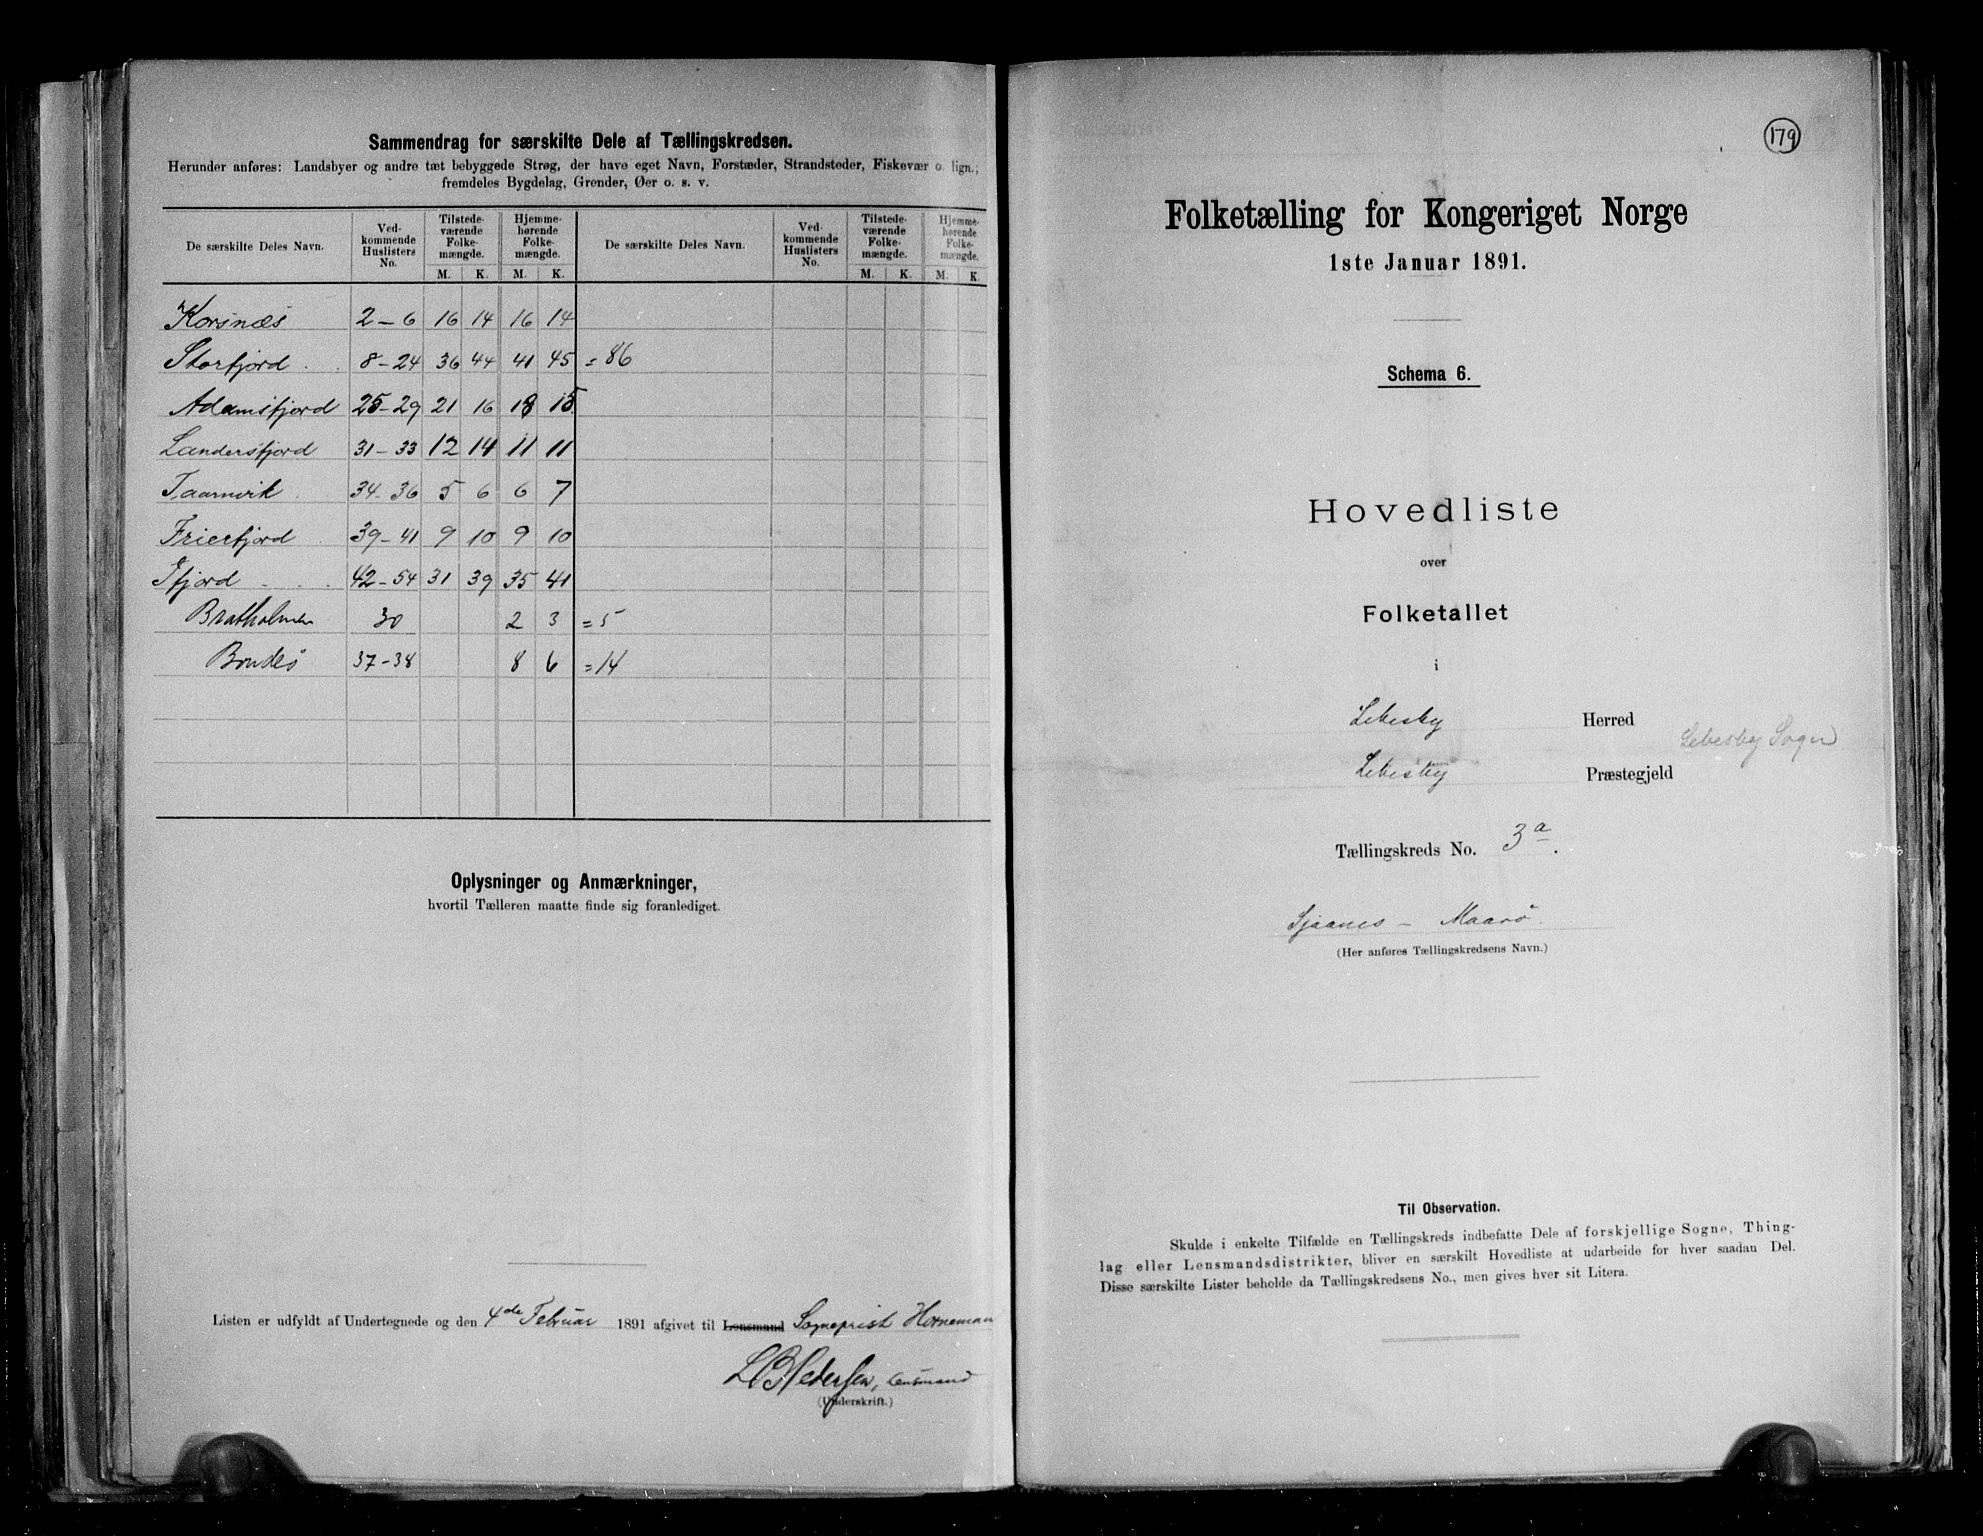 Sammendrag for særskilte Dele af Tællingskredsen.
Herunder anføres: Landsbyer og andre tæt bebyggede Strøg, der have eget Navn, Forstæder, Strandsteder, Fiskevær o. lign.,
fremdeles Bygdelag, Grender, Øer o. s. v.
De særskilte Deles Navn. Ved-kommende Huslisters No. Tilstede-værende Folke-mængde. Hjemme-hørende Folke-mængde. De særskilte Deles Navn. Ved-kommende Huslisters No. Tilstede-værende Folke-mængde. Hjemme-hørende Folke-mængde.
M. K. M. K. M. K. M. K.
Korsnæs 2-6 16 14 16 14
Storfjord 8-24 36 44 41 45 = 86
Adamsfjord 25-29 21 16 18 15
Landersfjord 31-33 12 14 11 11
Taarnvik 34-36 5 6 6 7
Frierfjord 39-41 9 10 9 10
Ifjord 42-54 31 39 35 41
Bratholmen 30 2 3 = 5
Brudeö 37-38 8 6 = 14
Oplysninger og Anmærkninger,
hvortil Tælleren maatte finde sig foranlediget.
Listen er udfyldt af Undertegnede og den 4de Februar 1891 afgivet til Lensmand Sogneprist Horneman
Pedersen, Lensmand
(Underskrift.)
179
Folketælling for Kongeriget Norge
1ste Januar 1891.
Schema 6.
Hovedliste
over
Folketallet
i
Lebesby Herred
Lebesby Sogn
Lebesby Præstegjeld
Tællingskreds No. 3a.
Sjaanes - Maarö.
(Her anføres Tællingskredsens Navn.)
Til Observation.
Skulde i enkelte Tilfælde en Tællingskreds indbefatte Dele af forskjellige Sogne, Thing-
lag eller Lensmandsdistrikter, bliver en særskilt Hovedliste at udarbeide for hver saadan Del.
Disse særskilte Lister beholde da Tællingskredsens No., men gives hver sit Litera.